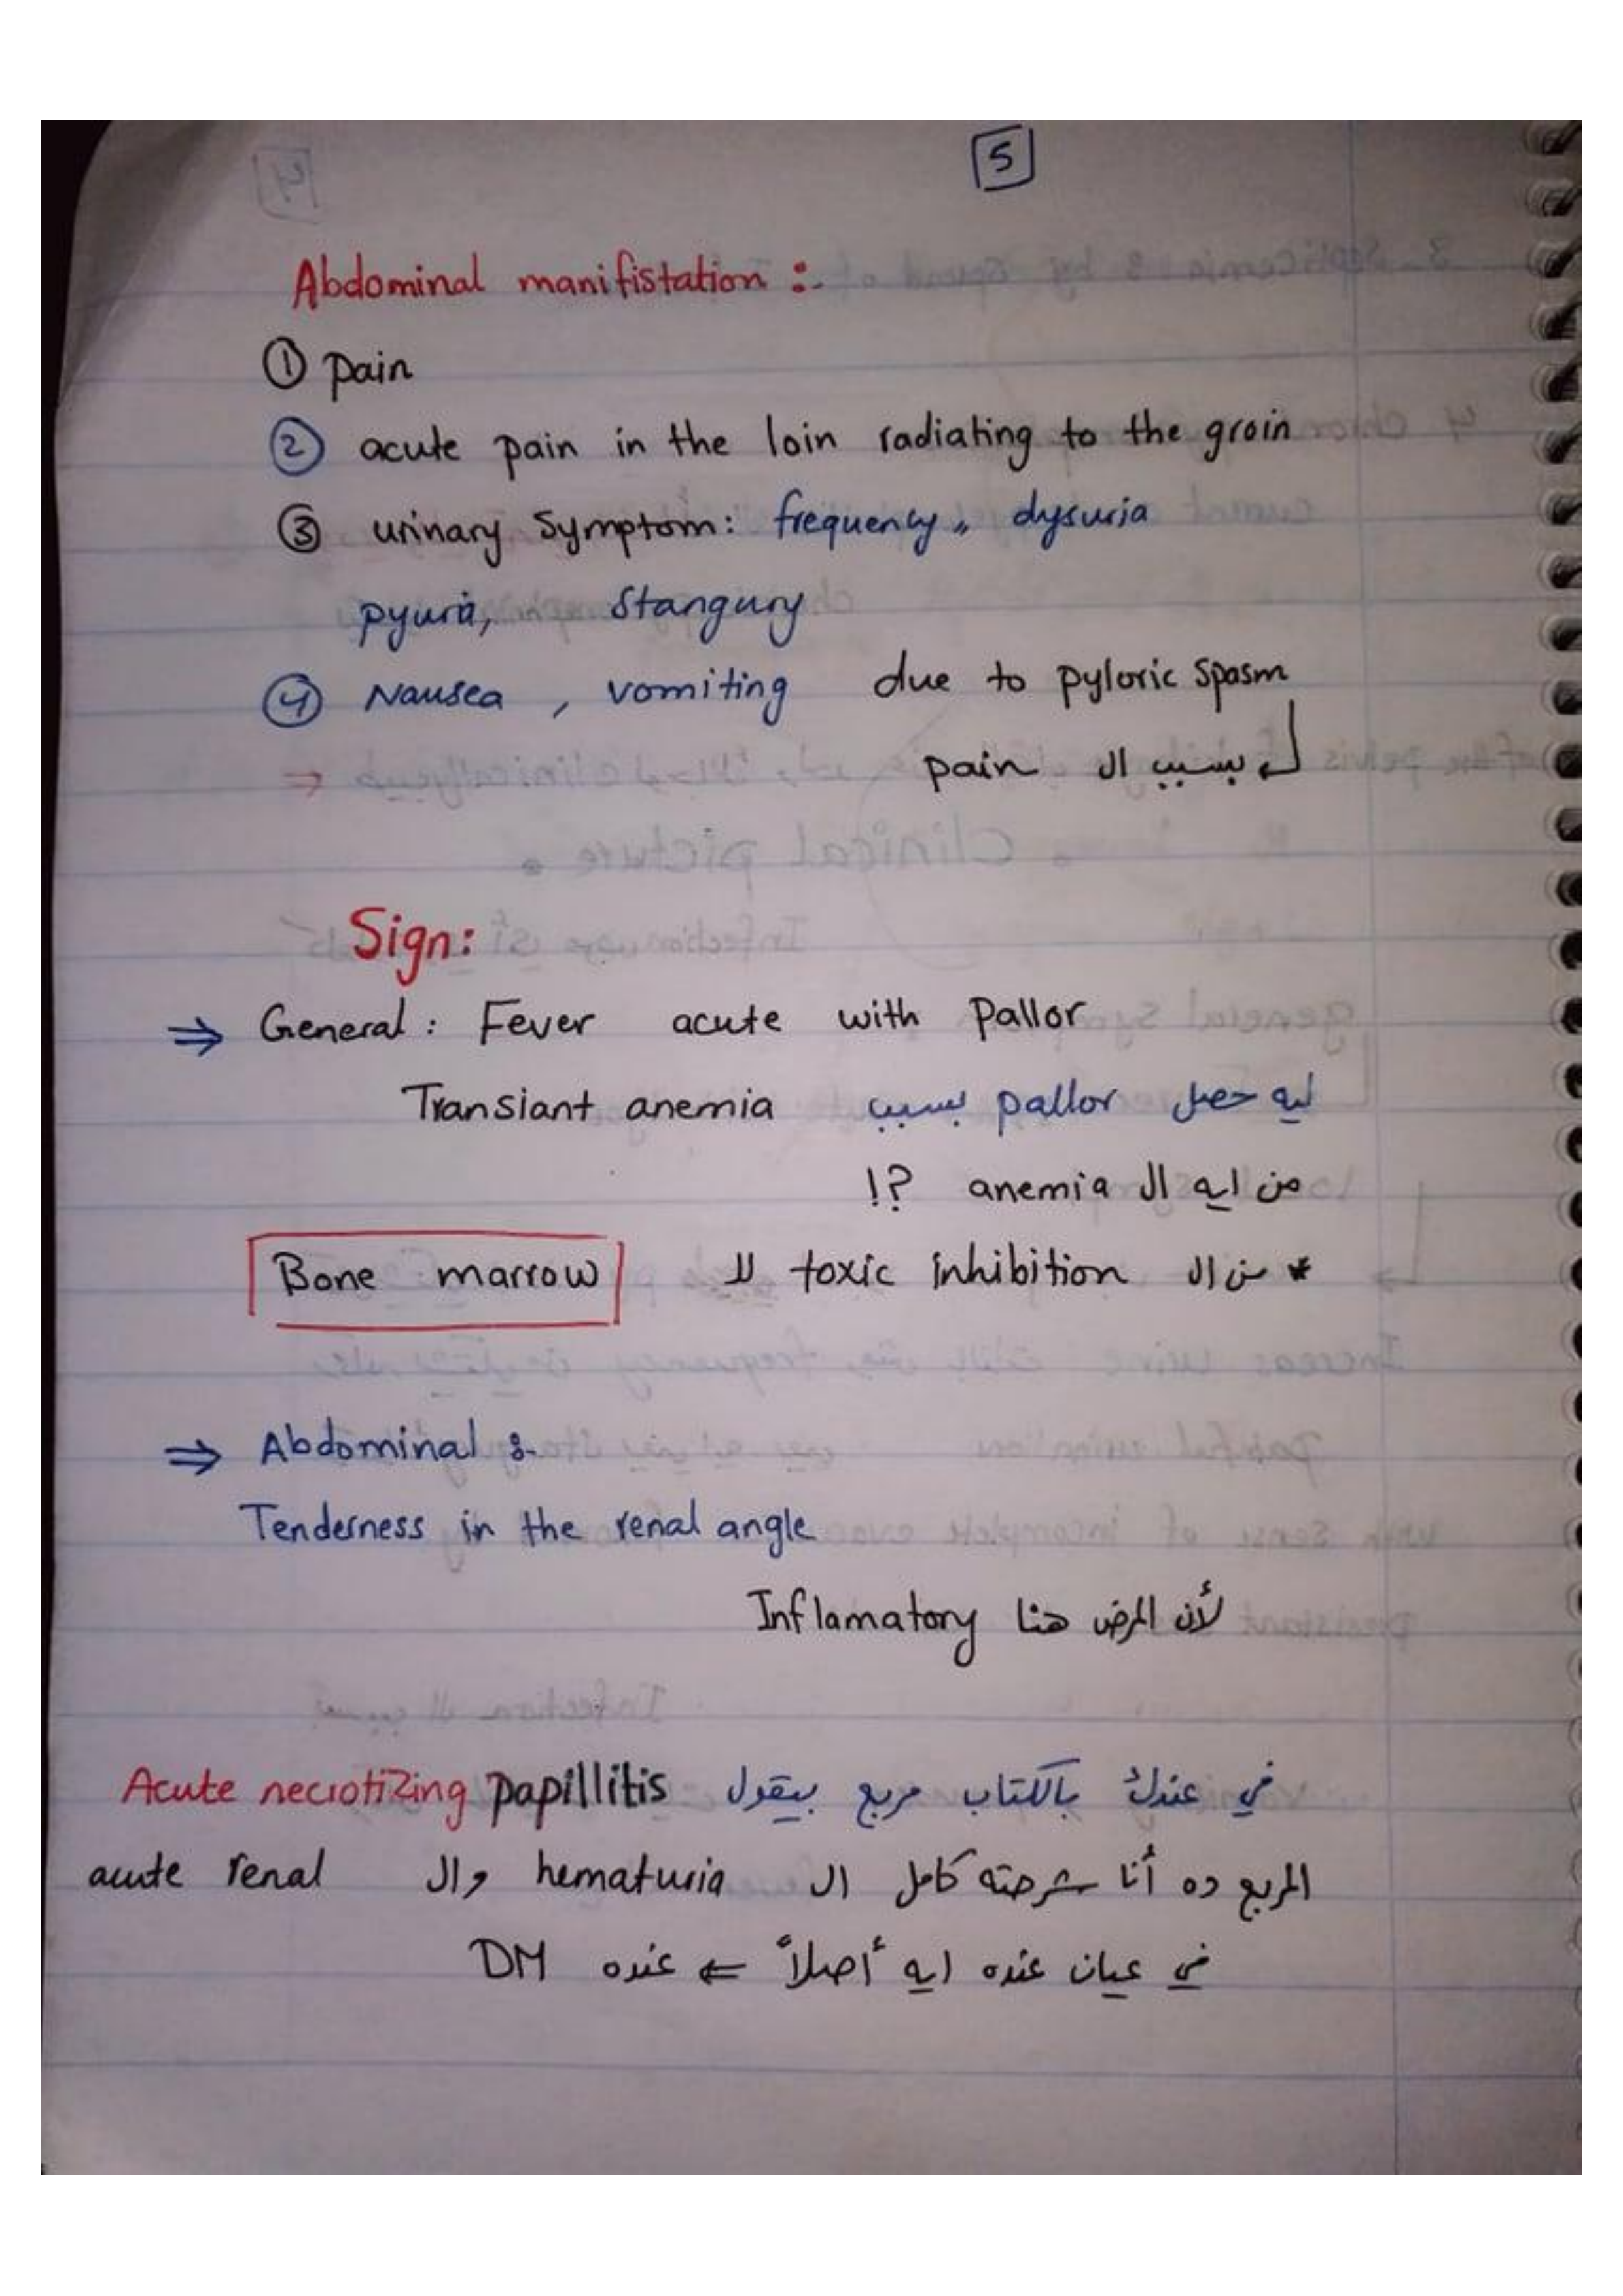 5
Abdominal manifistation :-
① pain
② acute pain in the loin radiating to the groin
③ urinary symptom: frequency,, dysuria
pyuria, Stangury
④ Nausea , vomiting due to pyloric spasm
بسبب ال pain
Sign:
⇒ General : Fever acute with Pallor
ليه حصل pallor بسبب Transiant anemia
من ايه ال anemia ?!
* من ال toxic inhibition لل Bone marrow
⇒ Abdominal :-
Tenderness in the renal angle
لأن المرض هنا Inflamatory
في عندك بالكتاب مربع بيقول Acute necrotizing papillitis
المربع ده أنا شرحته كامل ال hematuria وال acute renal
في عيان عنده ايه أصلاً ⇐ عنده DM